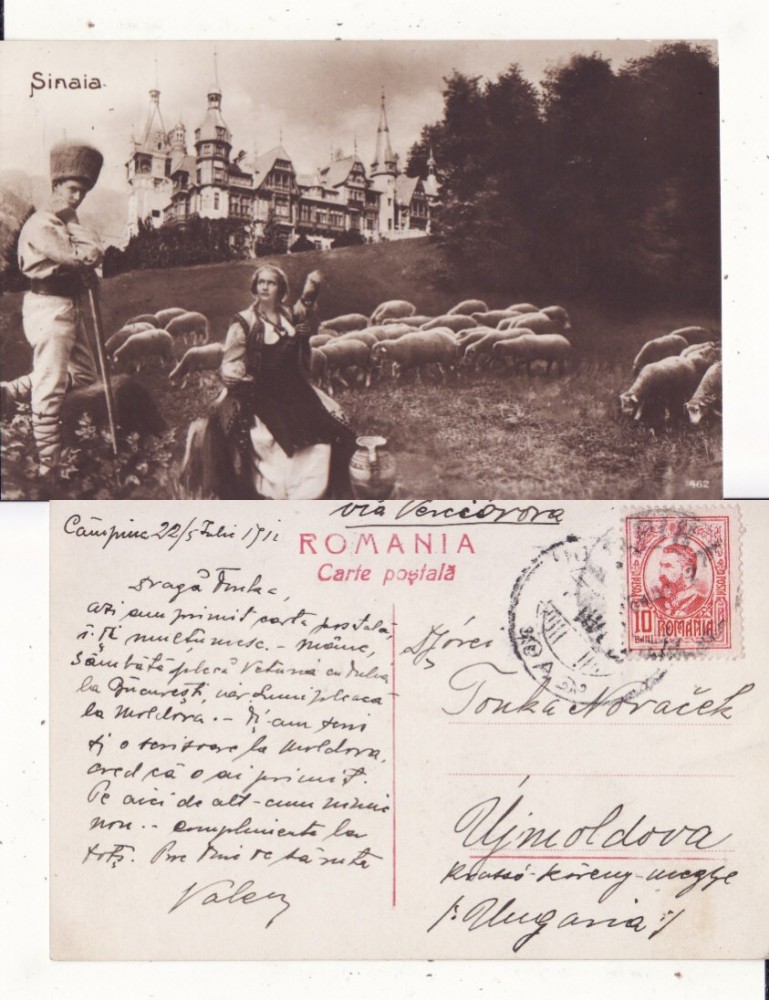 Sinaia.
462
via Verciorova
Câmpina 22/5 Iulie 191
ROMANIA
Carte poştală
Dragă Tonka,
azi am primit carta postală
şi-ţi mulţumesc. - Mâine,
Sâmbătă pleacă Veturia cu
la Bucureşti, iar Luni pleacă
la Moldova. - Ţi-am
şi o scrisoare la Moldova,
cred că o ai primit.
Pe aici de alt-cum nimic
nou. - complimente la
toţi. Pe tine te săruta
Valer
POSTA
10 BANI
ROMANIA
Tonka Novaček
Ujmoldova
Krassó-Szöreny-megye
/: Ungaria :/